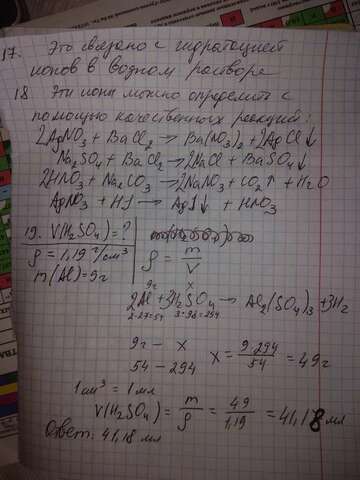 17. Это связано с гидратацией
ионов в водном растворе
18. Эти ионы можно определить с
помощью качественных реакций:
2AgNO₃ + BaCl₂ → Ba(NO₃)₂ + 2AgCl↓
Na₂SO₄ + BaCl₂ → 2NaCl + BaSO₄↓
2HNO₃ + Na₂CO₃ → 2NaNO₃ + CO₂↑ + H₂O
AgNO₃ + HJ → AgJ↓ + HNO₃
19. V(H₂SO₄) = ?
ρ = 1,19 г/см³
m(Al) = 9г
ρ = m/V
9г x
2Al + 3H₂SO₄ → Al₂(SO₄)₃ + 3H₂
2·27=54 3·98=294
9г - x
54 - 294
x = 9·294/54 = 49г
1см³ = 1мл
V(H₂SO₄) = m/ρ = 49/1,19 = 41,18 мл
Ответ: 41,18 мл